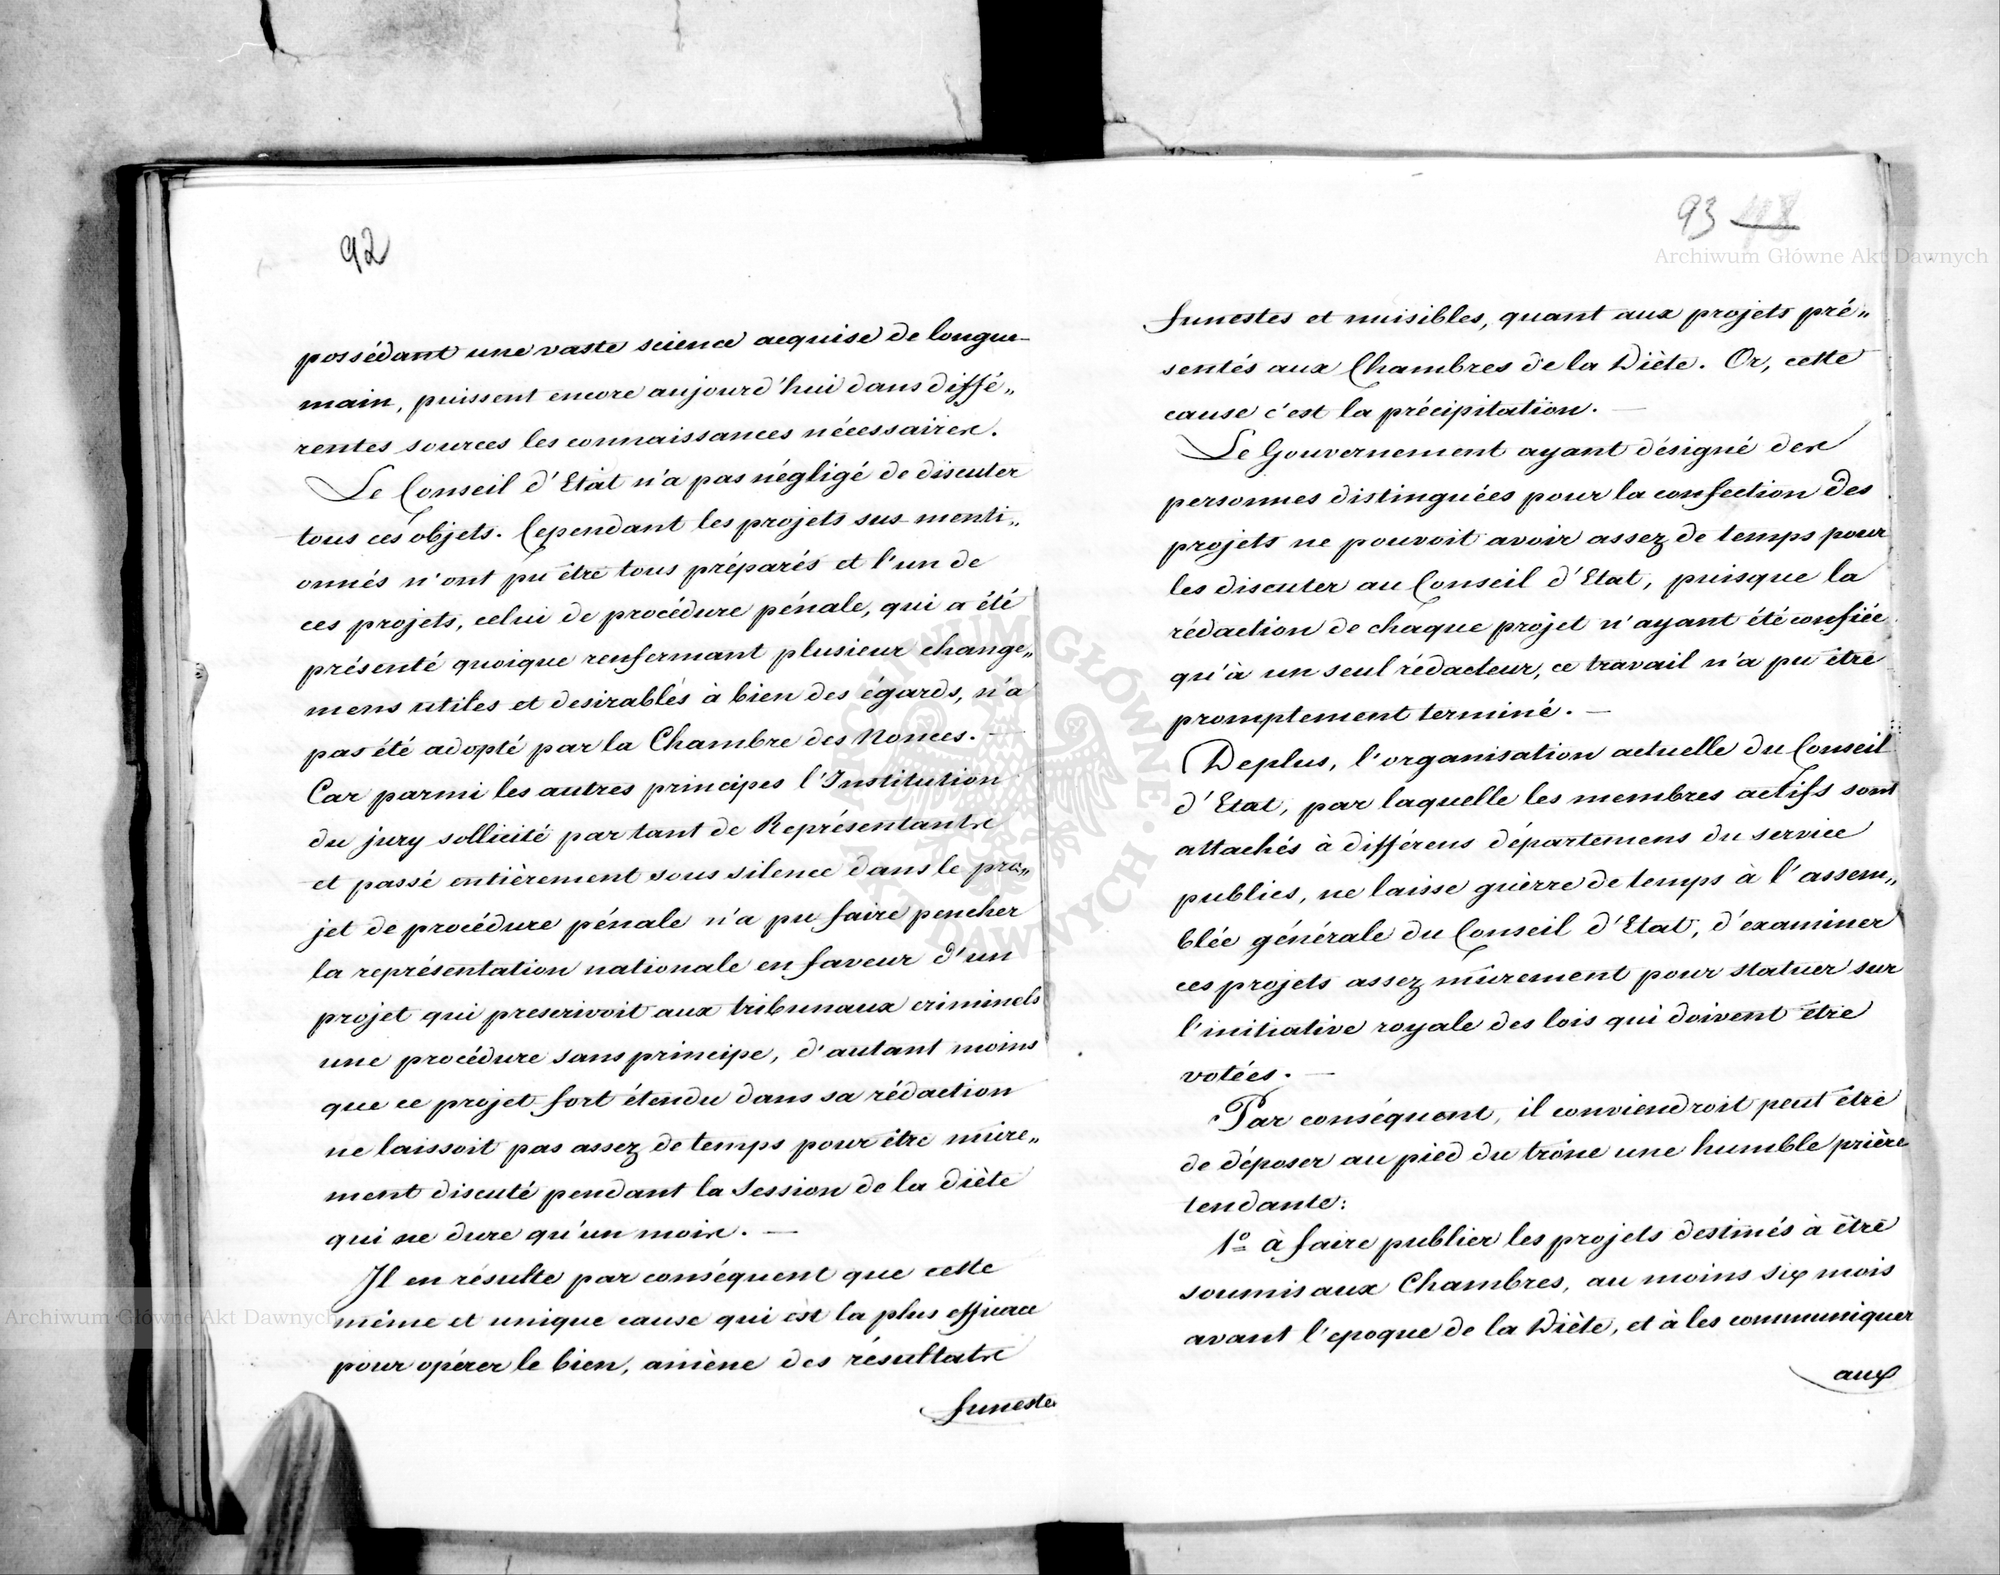 92
possédant une vaste science acquise de longue-
main, puissent encore aujourd'hui dans diffé„
rentes sources les connaissances nécessaires.
Le Conseil d'Etat n'a pas négligé de discuter
tous ces objets. Cependant les projets sus-menti„
onnés n'ont pu être tous préparés et l'un de
ces projets, celui de procédure pénale, qui a été
présenté quoique renfermant plusieur change„
mens utiles et desirables à bien des égards, n'a
pas été adopté par la Chambre des Nonces. —
Car parmi les autres principes l'Institution
du jury sollicité par tant de Représentants
et passé entièrement sous silence dans le pro„
jet de procédure pénale n'a pu faire pencher
la représentation nationale en faveur d'un
projet qui prescrivoit aux tribunaux criminels
une procédure sans principe, d'autant moins
que ce projet fort étendu dans sa rédaction
ne laissoit pas assez de temps pour être mûre„
ment discuté pendant la Session de la diète
qui ne dure qu'un mois. —
Il en résulte par conséquent que cette
même et unique cause qui est la plus efficace
pour opérer le bien, amène des résultats
funestes
93 48
funestes et nuisibles, quant aux projets pré„
sentés aux Chambres de la Diète. Or, cette
cause c'est la précipitation. —
Le Gouvernement ayant désigné des
personnes distinguées pour la confection des
projets ne pouvoit avoir assez de temps pour
les discuter au Conseil d'Etat, puisque la
rédaction de chaque projet n'ayant été confiée
qu'à un seul rédacteur, ce travail n'a pu être
promptement terminé. —
De plus, l'organisation actuelle du Conseil
d'Etat, par laquelle les membres actifs sont
attachés à différens départemens du service
publics, ne laisse guèrre de temps à l'assem„
blée générale du Conseil d'Etat, d'examiner
ces projets assez mûrement pour statuer sur
l'initiative royale des lois qui doivent être
votées. —
Par conséquent, il conviendroit peut être
de déposer au pied du trône une humble prière
tendante:
1º à faire publier les projets destinés à être
soumis aux Chambres, au moins six mois
avant l'epoque de la Diète, et à les communiquer
aux
Archiwum Główne Akt Dawnych
Archiwum Główne Akt Dawnych
ARCHIWUM GŁÓWNE AKT DAWNYCH